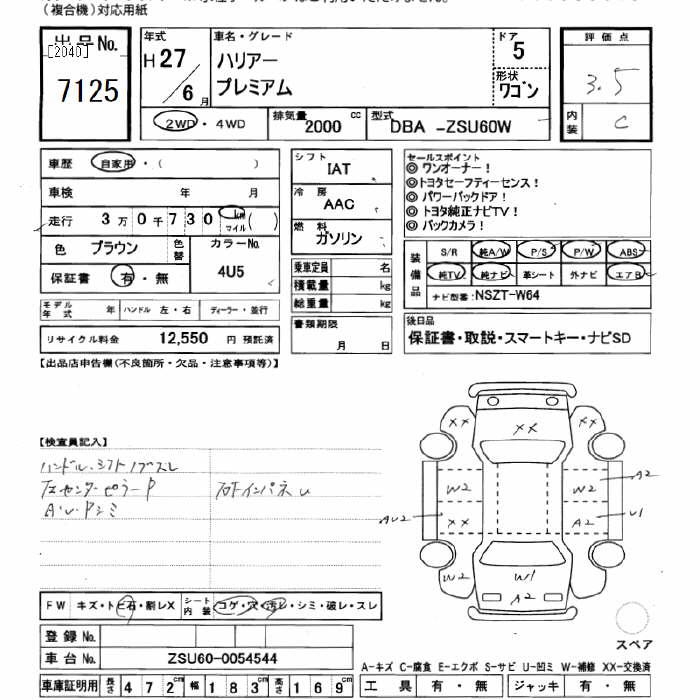 （複合機）対応用紙
出品No.
[2040]
7125
年式
H 27/6 月
車名・グレード
ハリアー
プレミアム
ドア
5
形状
ワゴン
2WD・4WD
排気量
2000 cc
型式
DBA -ZSU60W
評価点
3.5
内装
C
車歴 自家用・( )
車検 年 月
走行 3万0千730 km マイル ( )
色 ブラウン
色替
カラーNo.
4U5
保証書 有・無
モデル年式 年
ハンドル 左・右
ディーラー・並行
リサイクル料金 12,550 円 預託済
シフト
IAT
冷房
AAC
燃料
ガソリン
乗車定員 名
積載量 kg
総重量 kg
書類期限
月 日
セールスポイント
◎ ワンオーナー！
◎ トヨタセーフティーセンス！
◎ パワーバックドア！
◎ トヨタ純正ナビTV！
◎ バックカメラ！
装備品
S/R 純A/W P/S P/W ABS
純TV 純ナビ 革シート 外ナビ エアB
ナビ型番：NSZT-W64
後日品
保証書・取説・スマートキー・ナビSD
【出品店申告欄(不良箇所・欠品・注意事項等)】
【検査員記入】
ハンドル・シフトノブスレ
センターピラーP
A・U・Pシミ
インパネU
××
××
××
W2
W2
A2
AU2
××
A2
U1
W2
W2
W1
A2
スペア
FW キズ・トビ石・割レX
シート内装 コゲ・穴・汚レ・シミ・破レ・スレ
登録No.
車台No. ZSU60-0054544
車庫証明用 長さ 472cm 幅 183cm 高さ 169cm
A-キズ C-腐食 E-エクボ S-サビ U-凹ミ W-補修 XX-交換済
工具 有・無 ジャッキ 有・無